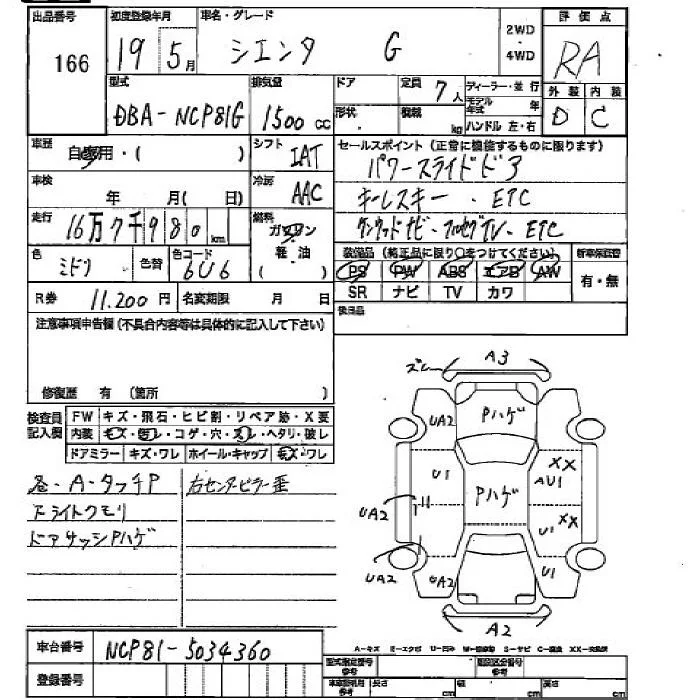 出品番号 初度登録年月 車名・グレード 2WD ・ 4WD 評価点
166 19 5月 シエンタ G RA
型式 排気量 ドア 定員 7人 ディーラー・並行 外装 内装
DBA-NCP81G 1500cc 形状 積載 kg モデル年式 年 ハンドル 左・右 D C
車歴 自家用・( ) シフト IAT セールスポイント(正常に機能するものに限ります)
パワースライドドア
車検 年 月(日) 冷房 AAC キーレスキー・ETC
走行 16万7千980km 燃料 ガソリン 軽油 ( ) ケンウッドナビ・フルセグTV・ETC
色 ミドリ 色替 色コード 6U6 装備品(純正品に限り○をつけてください) 新車保証書
PS PW ABS エアB AW 有・無
R券 11.200円 名変期限 月 日 SR ナビ TV カワ
注意事項申告欄(不具合内容等は具体的に記入して下さい) 後日品
修復歴 有(箇所 )
検査員記入欄 FW キズ・飛石・ヒビ割・リペア跡・X要
内装 キズ・汚レ・コゲ・穴・スレ・ヘタリ・破レ
ドアミラー キズ・ワレ ホイール・キャップ キズ・ワレ
各・A・タッチP 右センターピラー歪
ライトクモリ
ドアサッシPハゲ
ズレ A3
UA2 Pハゲ A2
U1 XX AU1
Pハゲ
UA2 U1 XX
UA2 UA2 U1
A2
A-キズ E-エクボ U-凹み W-補修跡 S-サビ C-腐食 XX-交換済
車台番号 NCP81-5034360
登録番号 型式指定番号 参考 類別区分番号 参考
車庫証明用 参考 長さ cm 幅 cm 高さ cm